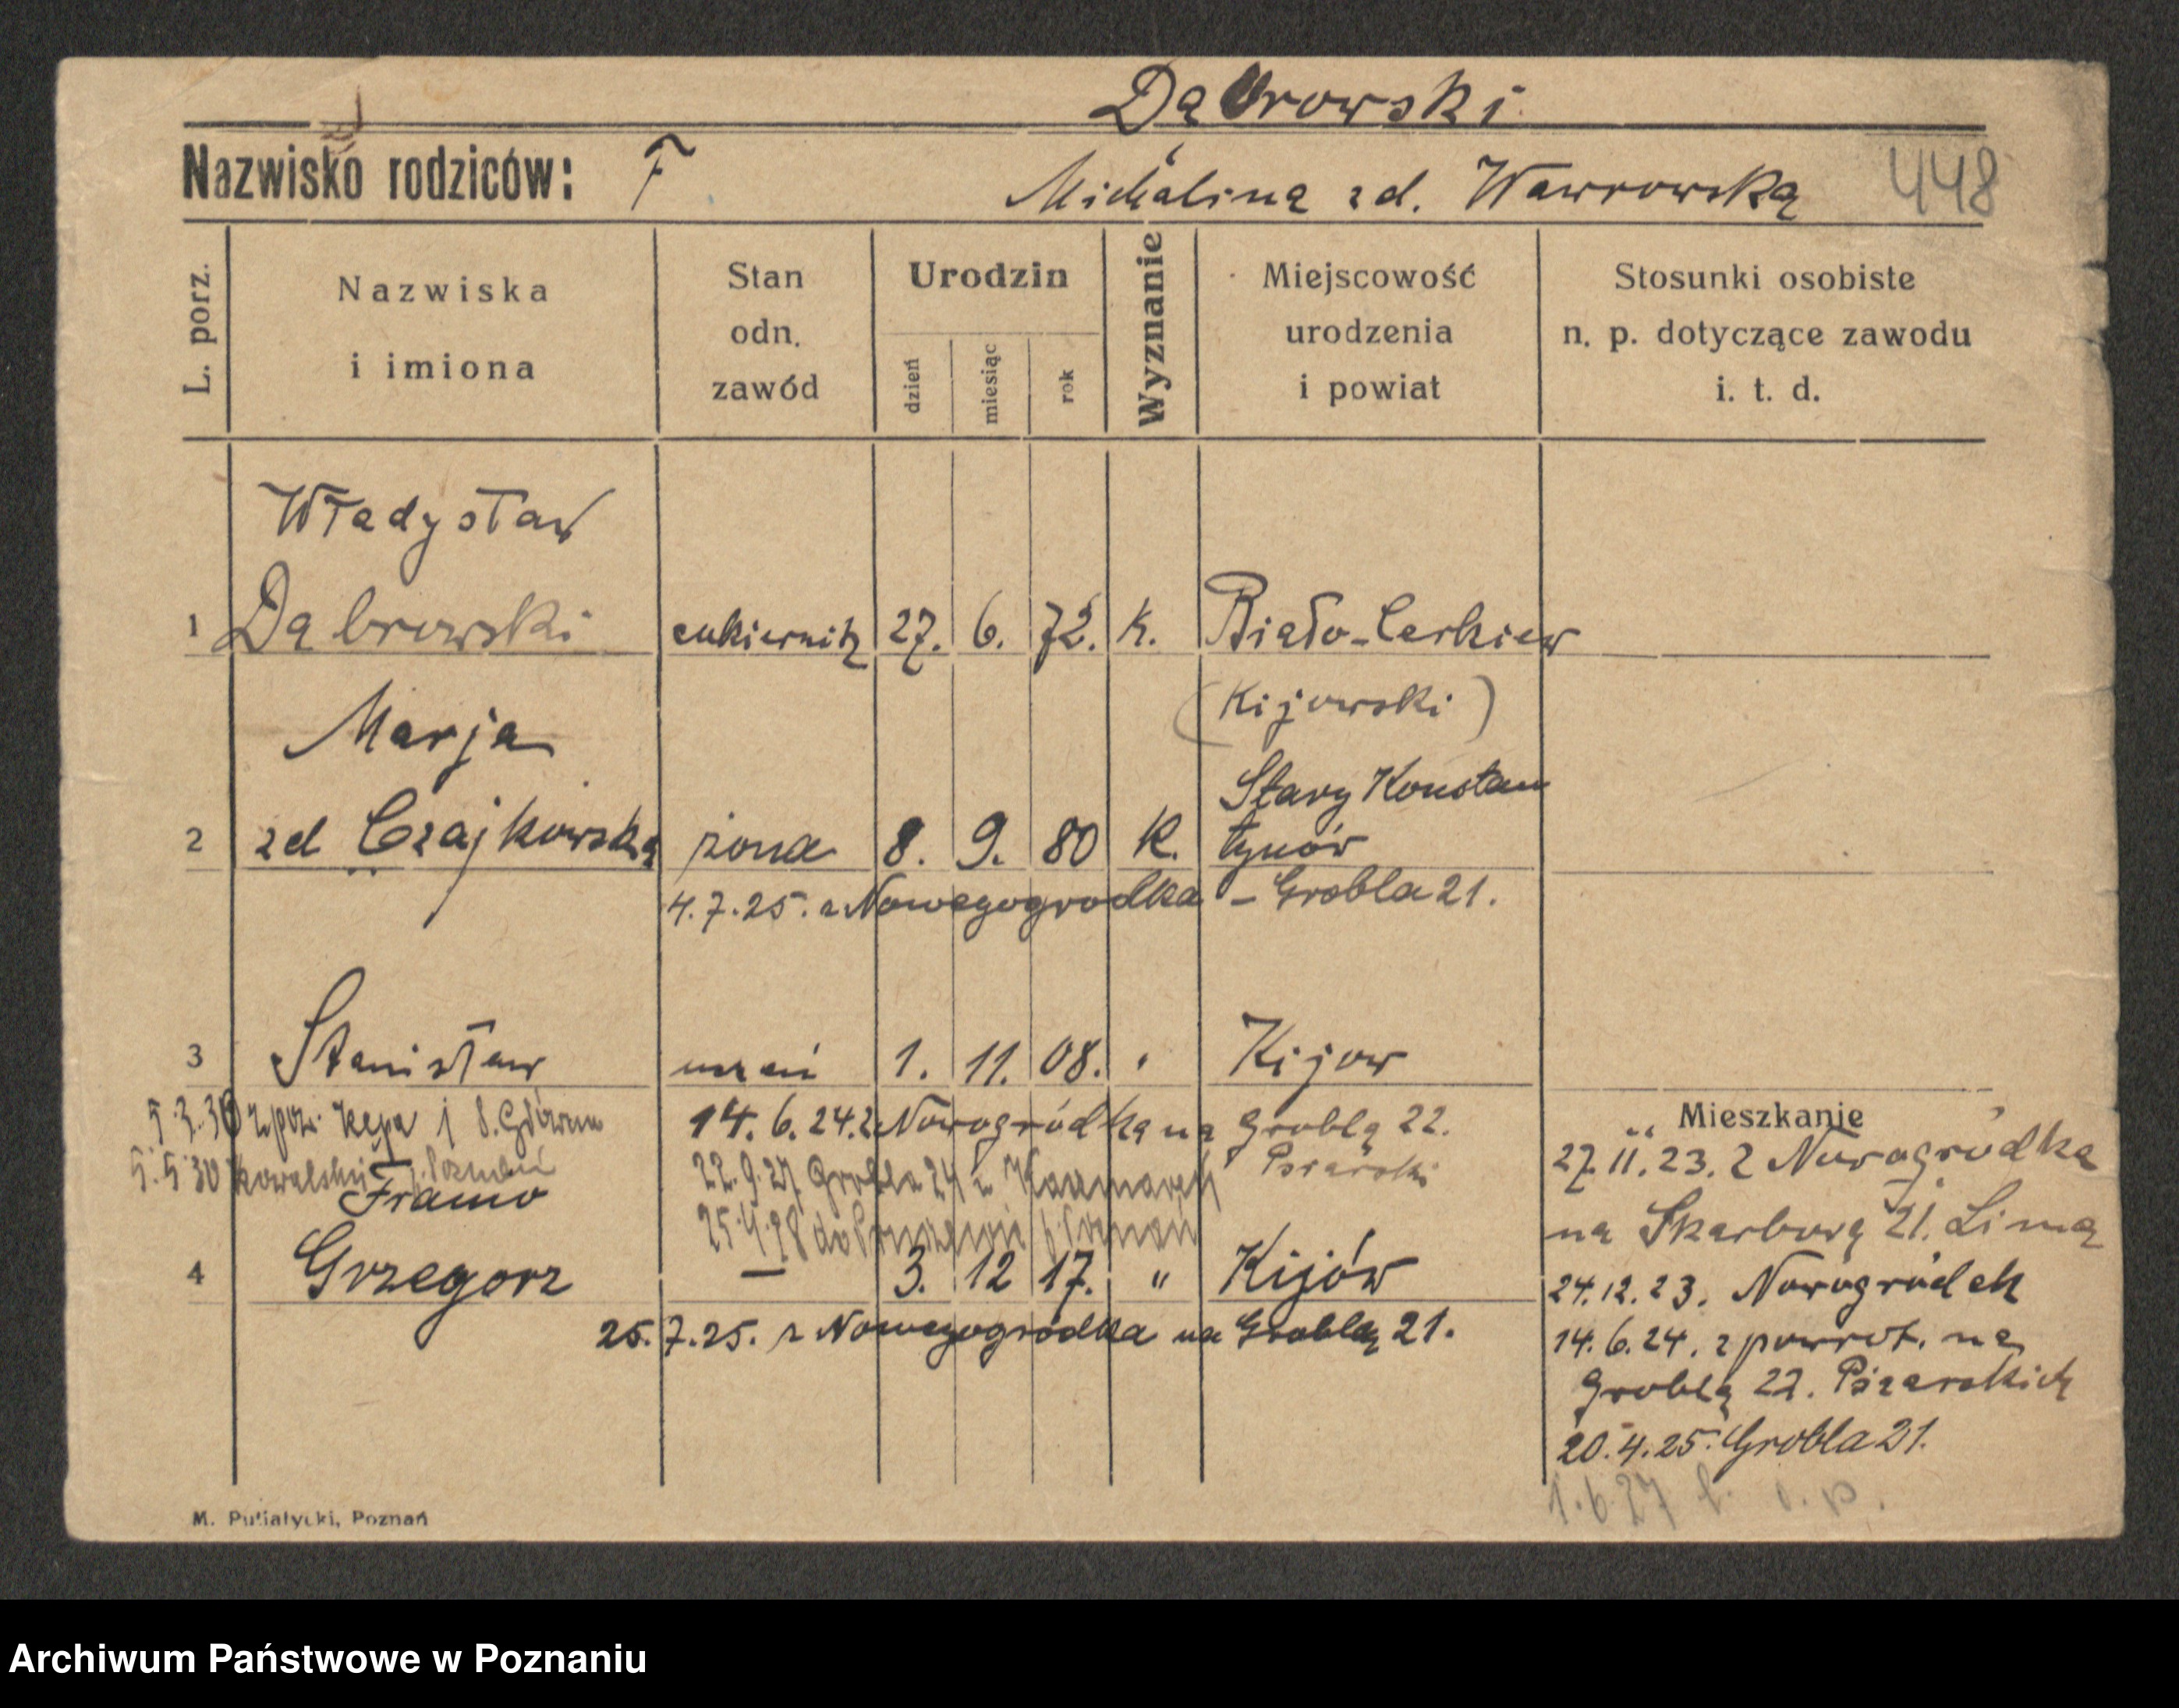 Dąbrowski
Nazwisko rodziców: F Michaliną zd. Wawrowską 448
L. porz.
Nazwiska i imiona
Stan odn. zawód
Urodzin
dzień miesiąc rok
Wyznanie
Miejscowość urodzenia i powiat
Stosunki osobiste n. p. dotyczące zawodu i. t. d.
Władysław
1 Dąbrowski cukiernik 27. 6. 72. K. Biało-Cerkiew
(Kijowski)
Marja
Stary Konstan
2 zd Czajkowska żona 8. 9. 80 K. tynów
4.7.25. z Nowegogrodka - Grobla 21.
3 Stanisław uczeń 1. 11. 08. " Kijow
5.3.30 z pow. Kępa
14.6.24. z Nowogródka na Groblą 22.
Pisarski
5.5.30 Kowalski p. Poznań
22.9.27 Grobla 24
Franio
25.4.28 do p. Poznań
4 Grzegorz — 3. 12 17. " Kijów
25.7.25. z Nowegogródka na Groblą 21.
Mieszkanie
27.11.23. z Nowogródka
na Skarbową 21. Limą
24.12.23. Nowogródek
14.6.24. z powrot. na
Groblą 22.
20.4.25. Grobla 21.
1.6.27
M. Putiatycki, Poznań
Archiwum Państwowe w Poznaniu